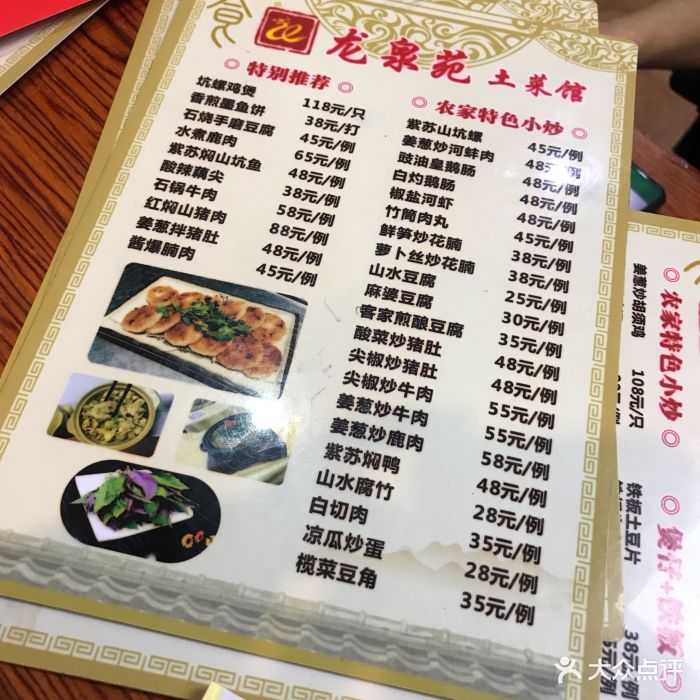 龙泉苑 土菜馆
特别推荐
坑螺鸡煲 118元/只
香煎墨鱼饼 38元/打
石烧手磨豆腐 45元/例
水煮鹿肉 65元/例
紫苏焖山坑鱼 48元/例
酸辣藕尖 38元/例
石锅牛肉 58元/例
红焖山猪肉 88元/例
姜葱拌猪肚 48元/例
酱爆腩肉 45元/例
农家特色小炒
紫苏山坑螺 45元/例
姜葱炒河蚌肉 48元/例
豉油皇鹅肠 48元/例
白灼鹅肠 48元/例
椒盐河虾 48元/例
竹筒肉丸 45元/例
鲜笋炒花腩 38元/例
萝卜丝炒花腩 38元/例
山水豆腐 25元/例
麻婆豆腐 30元/例
客家煎酿豆腐 35元/例
酸菜炒猪肚 48元/例
尖椒炒猪肚 48元/例
尖椒炒牛肉 55元/例
姜葱炒牛肉 55元/例
姜葱炒鹿肉 58元/例
紫苏焖鸭 48元/例
山水腐竹 28元/例
白切肉 35元/例
凉瓜炒蛋 28元/例
榄菜豆角 35元/例
农家特色小炒
姜葱炒胡须鸡 108元/只
铁板土豆片 38元/例
大众点评